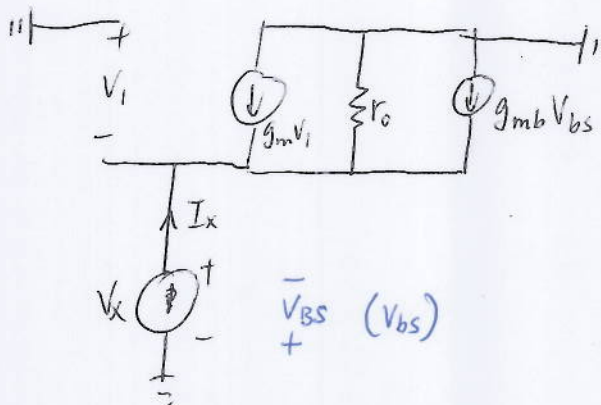 +
V₁
-
g_m v₁
r₀
g_mb V_bs
I_x
V_x
+
-
-
V_BS (V_bs)
+